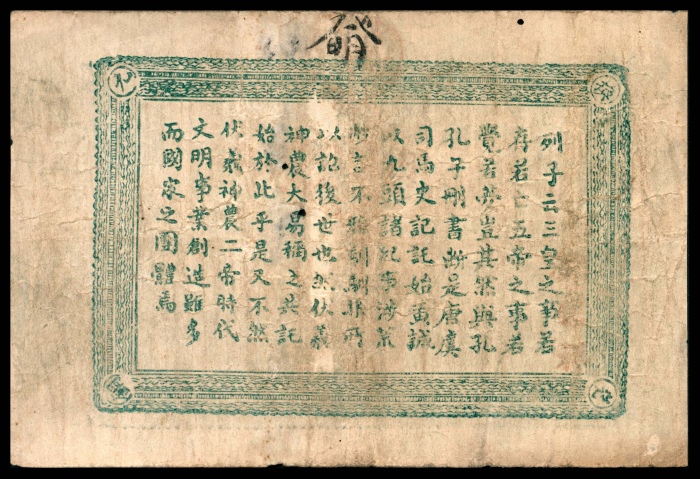 列子云三皇之事若
存若亡五帝之事若
覺若夢豈其然與孔
孔子刪書斷是唐虞
司馬史記託始黃誠
以九頭諸紀事涉荒
渺言不雅馴非所
以詔後世也然伏羲
神農大易稱之共記
始於此乎是又不然
伏羲神農二帝時代
文明事業創造雖多
而國家之團體焉